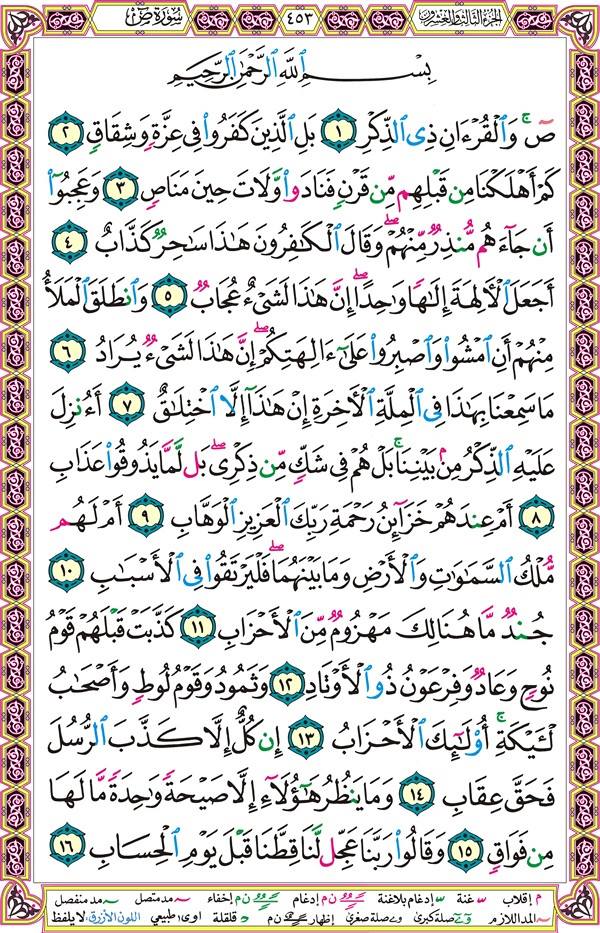 الجزء الثالث والعشرون ٤٥٣ سُورَةُ صٓ
بِسْمِ ٱللَّهِ ٱلرَّحْمَٰنِ ٱلرَّحِيمِ
صٓۚ وَٱلْقُرْءَانِ ذِى ٱلذِّكْرِ ١ بَلِ ٱلَّذِينَ كَفَرُوا۟ فِى عِزَّةٍ وَشِقَاقٍ ٢
كَمْ أَهْلَكْنَا مِن قَبْلِهِم مِّن قَرْنٍ فَنَادَوا۟ وَّلَاتَ حِينَ مَنَاصٍ ٣ وَعَجِبُوٓا۟
أَن جَآءَهُم مُّنذِرٌ مِّنْهُمْۖ وَقَالَ ٱلْكَٰفِرُونَ هَٰذَا سَٰحِرٌ كَذَّابٌ ٤
أَجَعَلَ ٱلْءَالِهَةَ إِلَٰهًا وَٰحِدًاۖ إِنَّ هَٰذَا لَشَىْءٌ عُجَابٌ ٥ وَٱنطَلَقَ ٱلْمَلَأُ
مِنْهُمْ أَنِ ٱمْشُوا۟ وَٱصْبِرُوا۟ عَلَىٰٓ ءَالِهَتِكُمْۖ إِنَّ هَٰذَا لَشَىْءٌ يُرَادُ ٦
مَا سَمِعْنَا بِهَٰذَا فِى ٱلْمِلَّةِ ٱلْءَاخِرَةِ إِنْ هَٰذَآ إِلَّا ٱخْتِلَٰقٌ ٧ أَءُنزِلَ
عَلَيْهِ ٱلذِّكْرُ مِنۢ بَيْنِنَاۚ بَلْ هُمْ فِى شَكٍّ مِّن ذِكْرِىۖ بَل لَّمَّا يَذُوقُوا۟ عَذَابِ
٨ أَمْ عِندَهُمْ خَزَآئِنُ رَحْمَةِ رَبِّكَ ٱلْعَزِيزِ ٱلْوَهَّابِ ٩ أَمْ لَهُم
مُّلْكُ ٱلسَّمَٰوَٰتِ وَٱلْأَرْضِ وَمَا بَيْنَهُمَاۖ فَلْيَرْتَقُوا۟ فِى ٱلْأَسْبَٰبِ ١٠
جُندٌ مَّا هُنَالِكَ مَهْزُومٌ مِّنَ ٱلْأَحْزَابِ ١١ كَذَّبَتْ قَبْلَهُمْ قَوْمُ
نُوحٍ وَعَادٌ وَفِرْعَوْنُ ذُو ٱلْأَوْتَادِ ١٢ وَثَمُودُ وَقَوْمُ لُوطٍ وَأَصْحَٰبُ
لْـَٔيْكَةِۚ أُو۟لَٰٓئِكَ ٱلْأَحْزَابُ ١٣ إِن كُلٌّ إِلَّا كَذَّبَ ٱلرُّسُلَ
فَحَقَّ عِقَابِ ١٤ وَمَا يَنظُرُ هَٰٓؤُلَآءِ إِلَّا صَيْحَةً وَٰحِدَةً مَّا لَهَا
مِن فَوَاقٍ ١٥ وَقَالُوا۟ رَبَّنَا عَجِّل لَّنَا قِطَّنَا قَبْلَ يَوْمِ ٱلْحِسَابِ ١٦
م إقلاب غنة إدغام بلاغنة ن م إدغام ن م إخفاء مد متصل مد منفصل
المد اللازم صلة كبرى صلة صغرى إظهار ن م قلقلة اوى طبيعي اللون الأزرق لا يلفظ